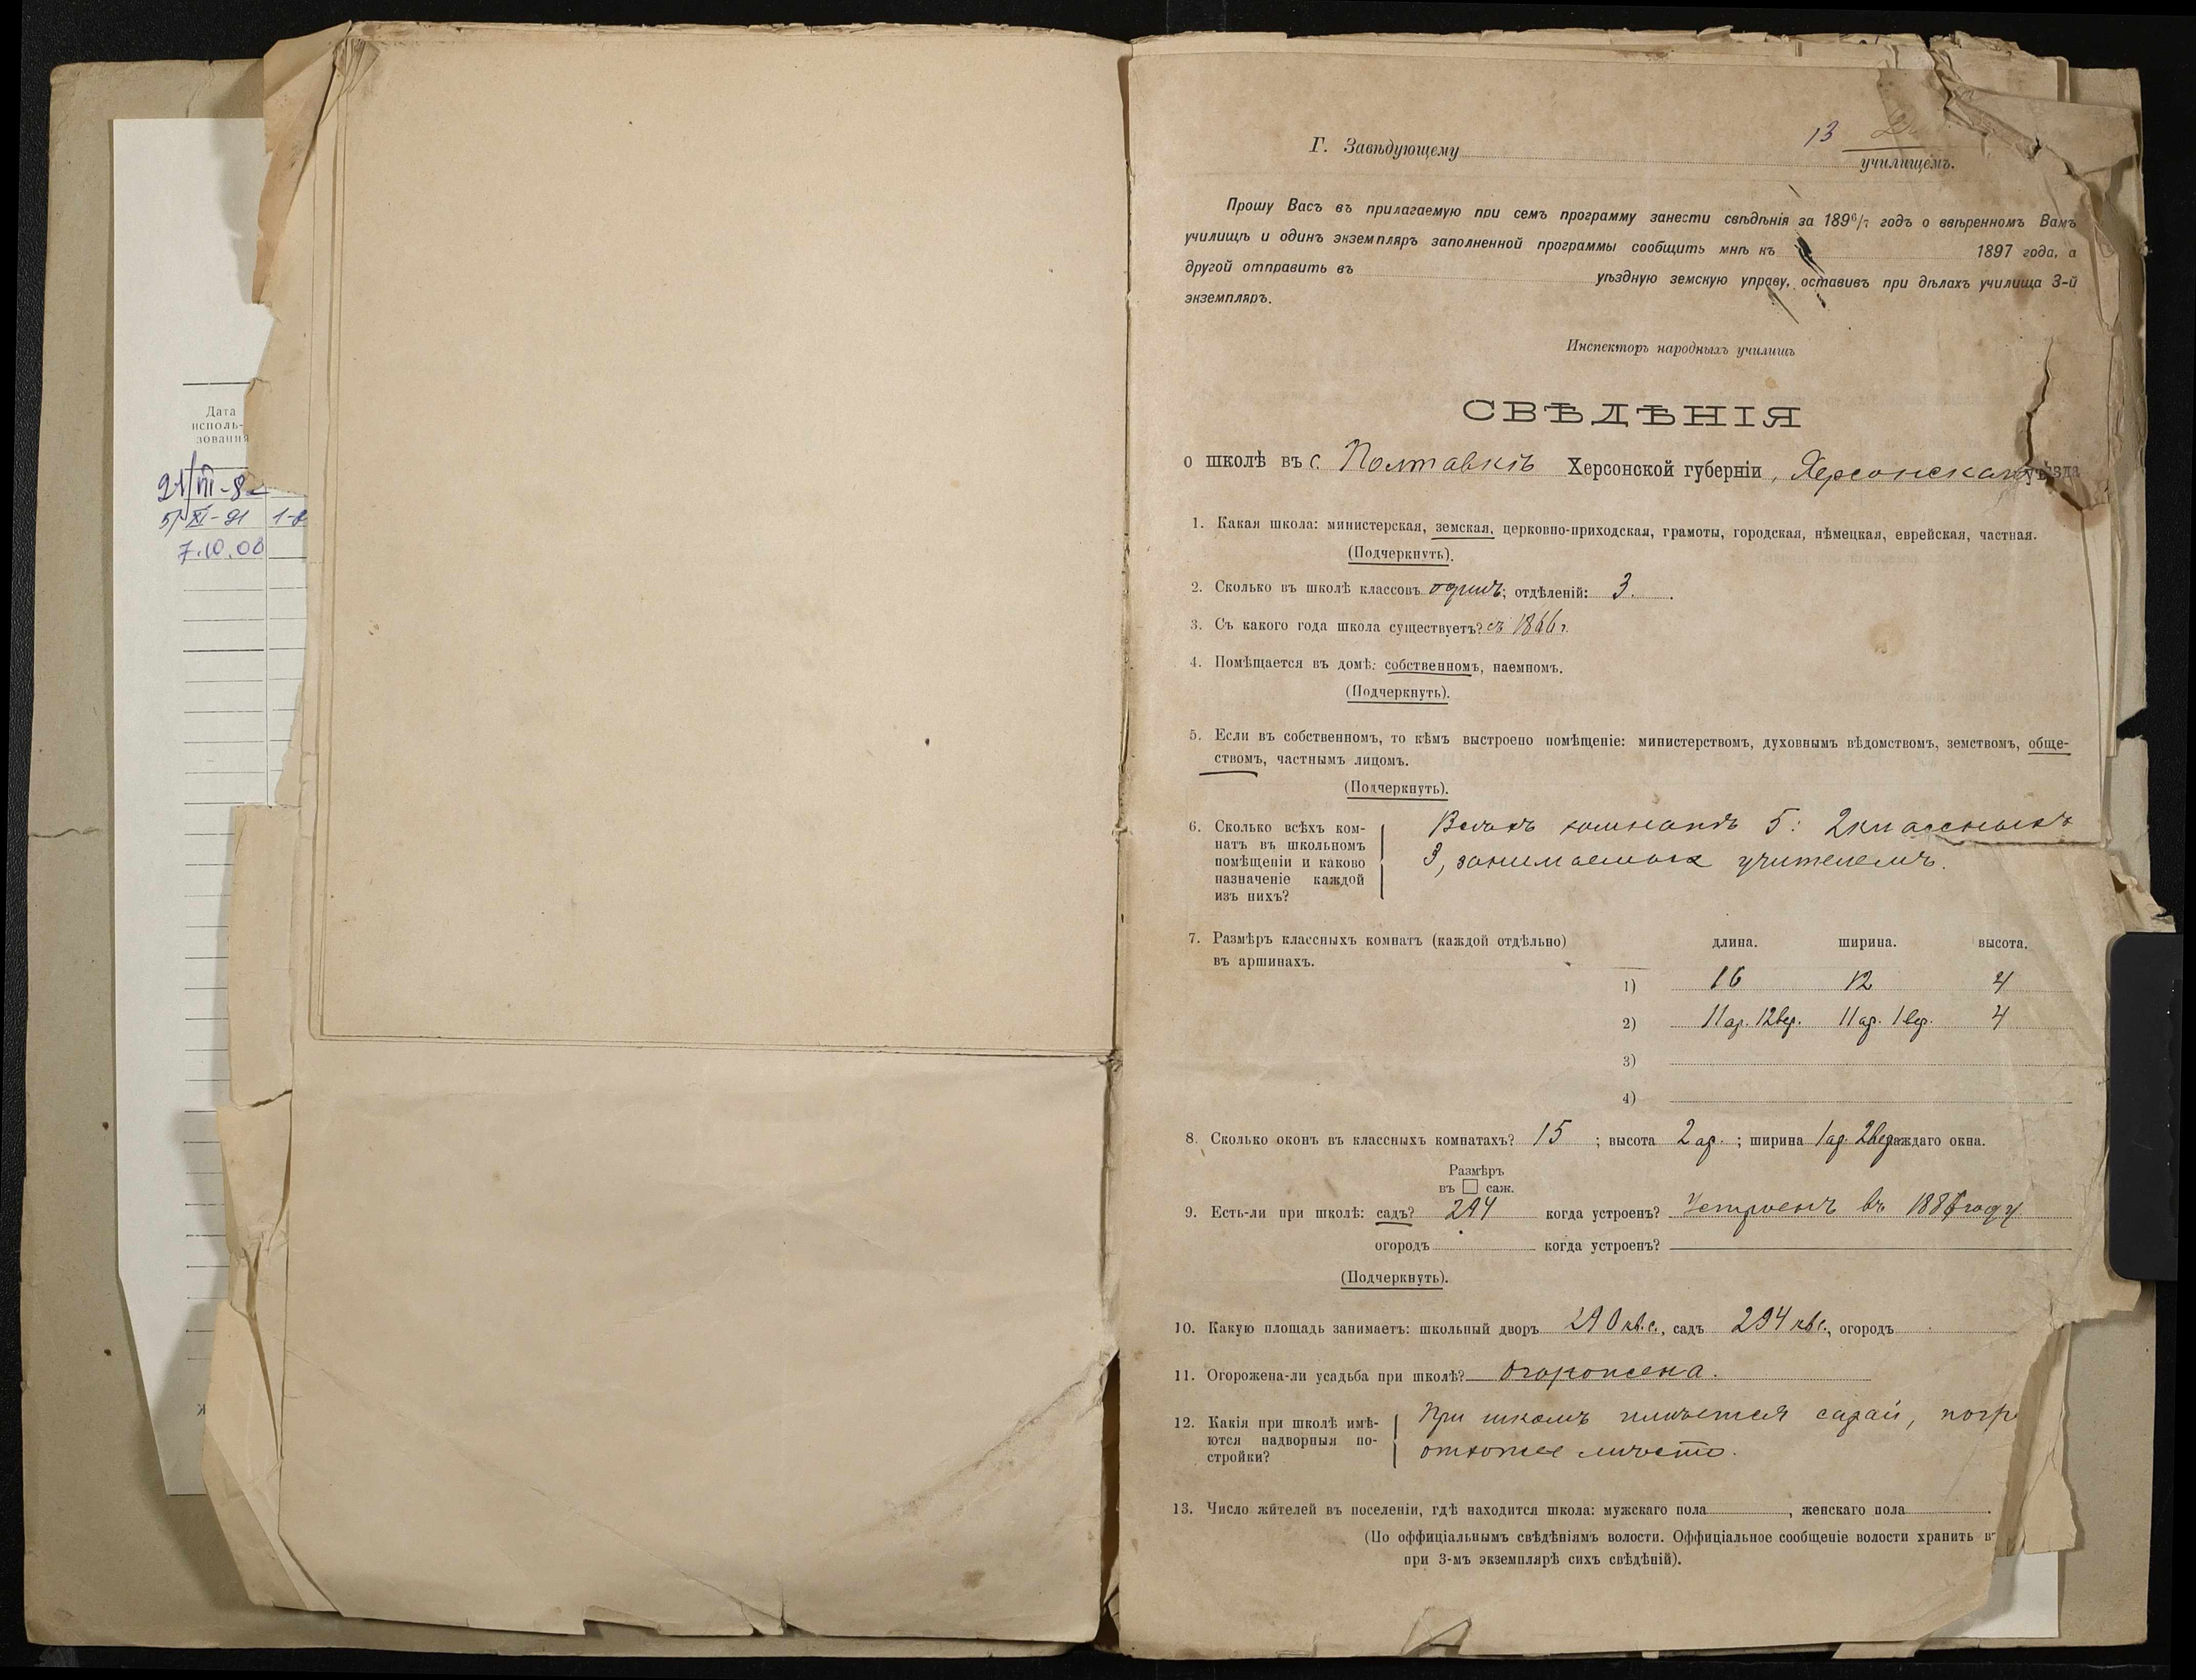 Дата
исполь-
зования
21/VII-8
5/XI-91 1-
7.10.08
13
Г. Завѣдующему
училищемъ.
Прошу Васъ въ прилагаемую при семъ программу занести свѣдѣнія за 189⁶/₇ годъ о ввѣренномъ Вамъ
училищѣ и одинъ экземпляръ заполненной программы сообщить мнѣ къ 1897 года, а
другой отправить въ уѣздную земскую управу, оставивъ при дѣлахъ училища 3-й
экземпляръ.
Инспекторъ народныхъ училищъ
СВѢДѢНІЯ
о школѣ въ с. Полтавкѣ Херсонской губерніи, Херсонскаго уѣзда
1. Какая школа: министерская, земская, церковно-приходская, грамоты, городская, нѣмецкая, еврейская, частная.
(Подчеркнуть).
2. Сколько въ школѣ классовъ одинъ; отдѣленій: 3.
3. Съ какого года школа существуетъ? съ 1866 г.
4. Помѣщается въ домѣ: собственномъ, наемномъ.
(Подчеркнуть).
5. Если въ собственномъ, то кѣмъ выстроено помѣщеніе: министерствомъ, духовнымъ вѣдомствомъ, земствомъ, обще-
ствомъ, частнымъ лицомъ.
(Подчеркнуть).
6. Сколько всѣхъ ком- Всѣхъ комнатъ 5: 2 классныхъ
натъ въ школьномъ
помѣщеніи и каково 3, занимаемыхъ учителемъ.
назначеніе каждой
изъ нихъ?
7. Размѣръ классныхъ комнатъ (каждой отдѣльно) длина. ширина. высота.
въ аршинахъ.
1) 16 12 4
2) 11 ар. 12 вер. 11 ар. 1 вер. 4
3)
4)
8. Сколько оконъ въ классныхъ комнатахъ? 15 ; высота 2 ар. ; ширина 1 ар. 2 вер. каждаго окна.
Размѣръ
въ □ саж.
9. Есть-ли при школѣ: садъ? 294 когда устроенъ? Устроенъ въ году
огородъ когда устроенъ?
(Подчеркнуть).
10. Какую площадь занимаетъ: школьный дворъ 290 кв. с., садъ 294 кв. с., огородъ
11. Огорожена-ли усадьба при школѣ? Огорожена.
12. Какія при школѣ имѣ- При школѣ имѣется сарай, погр
ются надворныя по- отхожее мѣсто.
стройки?
13. Число жителей въ поселеніи, гдѣ находится школа: мужскаго пола , женскаго пола .
(По оффиціальнымъ свѣдѣніямъ волости. Оффиціальное сообщеніе волости хранить въ
при 3-мъ экземплярѣ сихъ свѣдѣній).